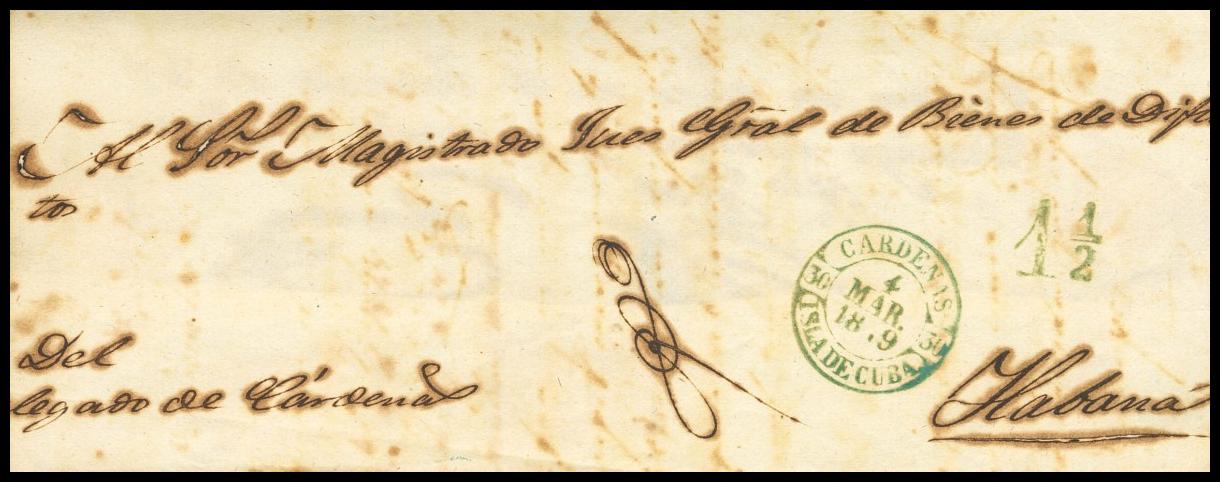 Al Sor Magistrado Jues Gral de Bienes de Difu
tos
1 1/2
CARDENAS
30
4
MAR.
18 . 9
ISLA DE CUBA.
Del
legado de Cárdenas
Habana